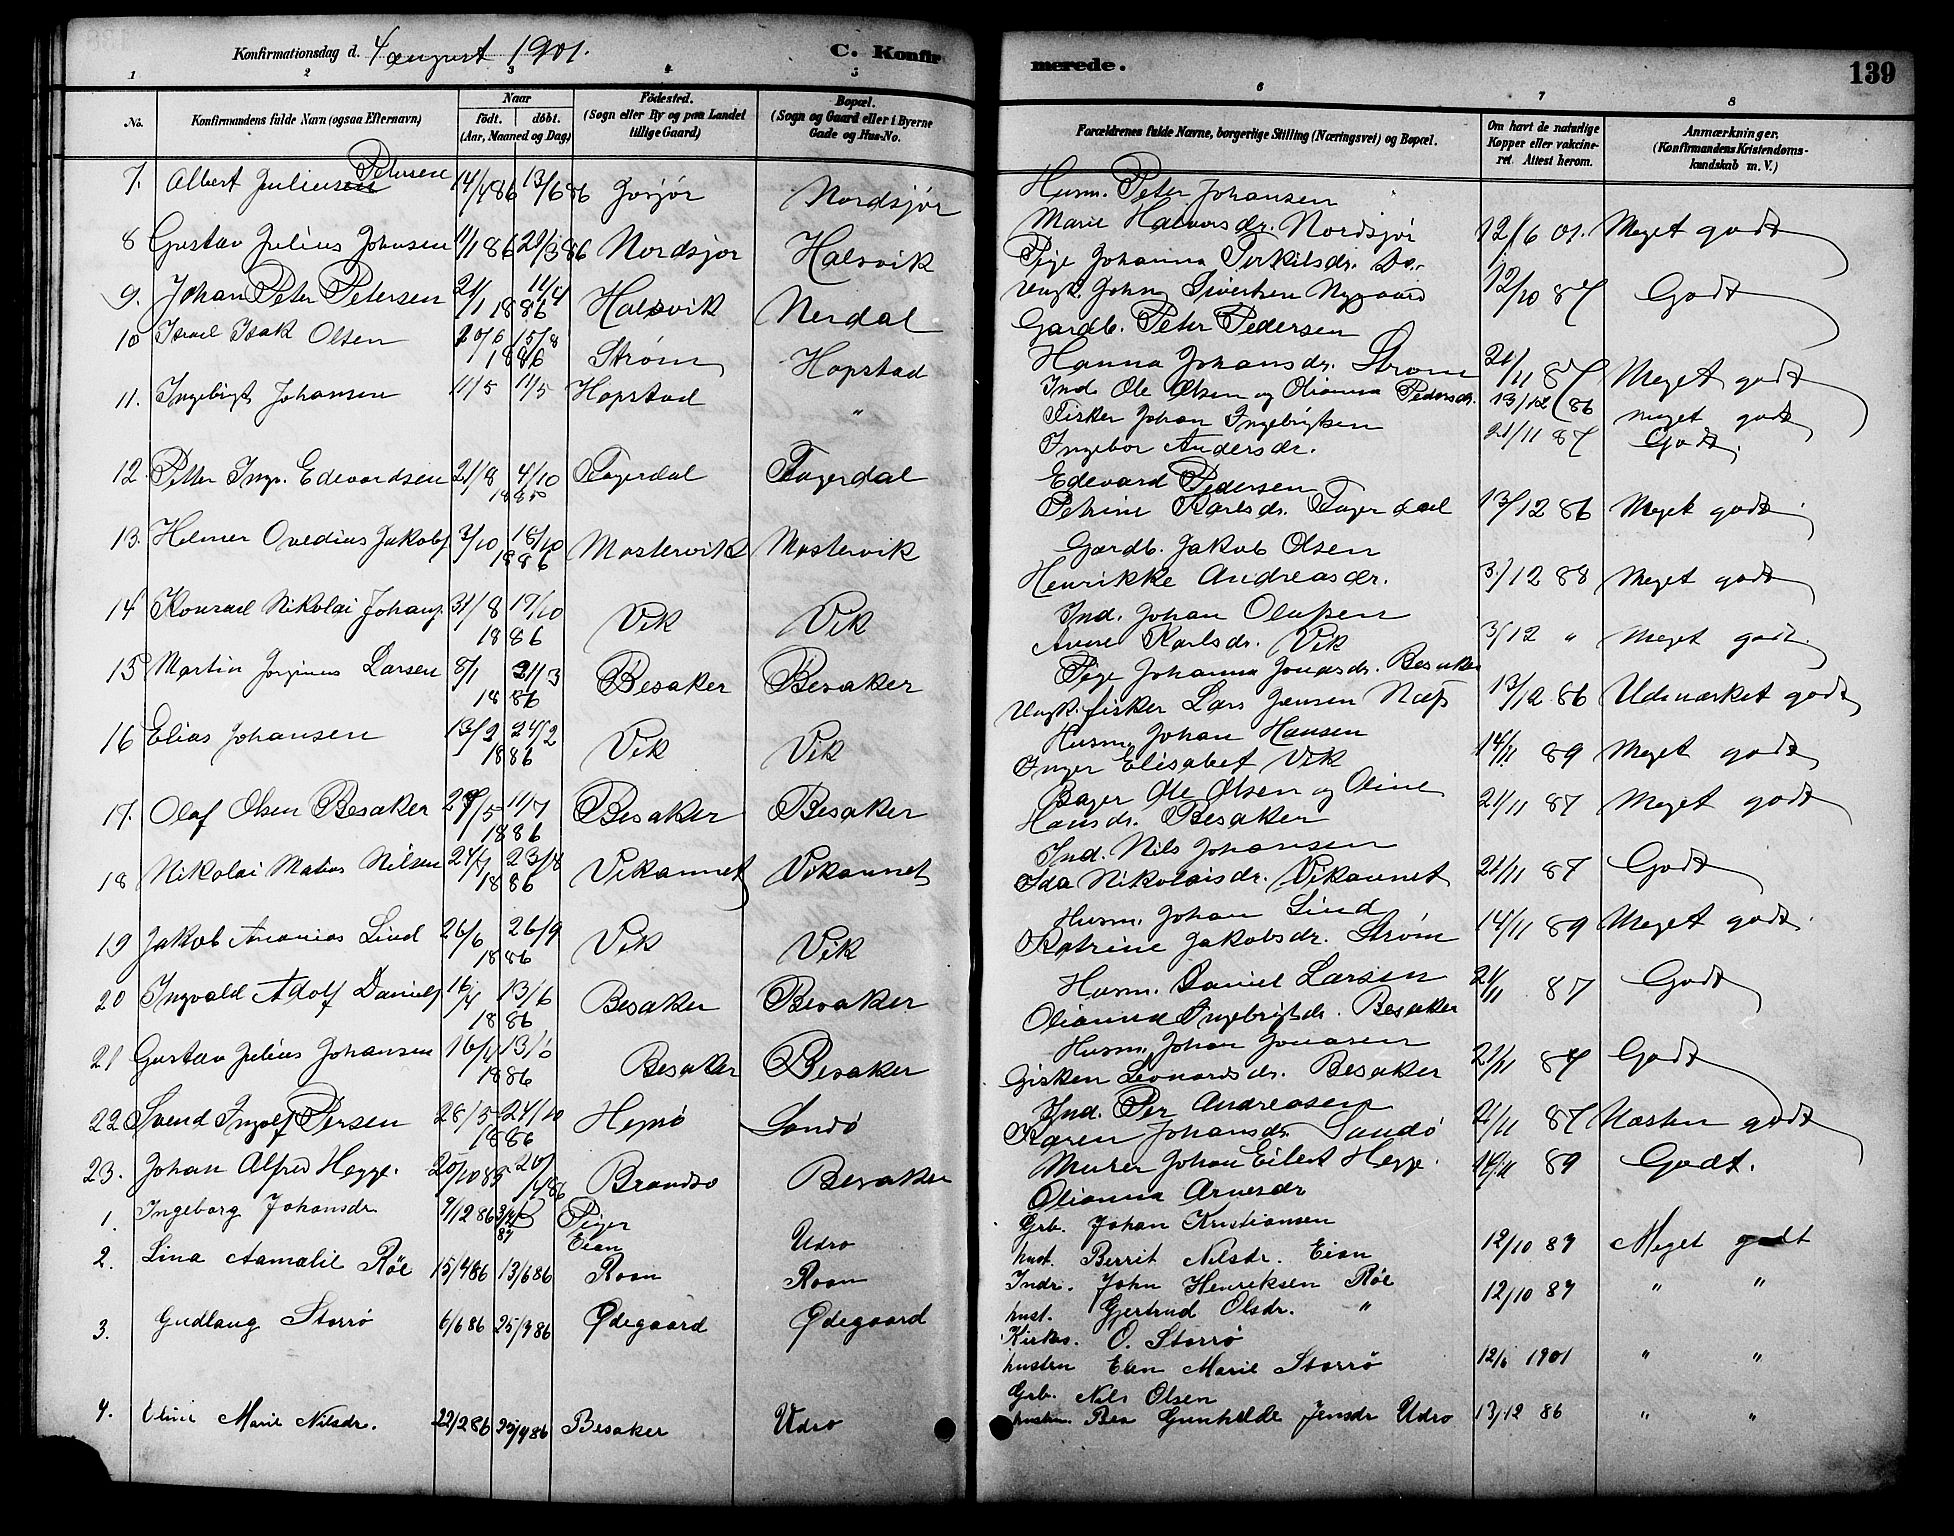 Konfirmationsdag d. 4 august 1901. C. Konfir merede. 139
1 2 3 4 5 6 7 8
No. Konfirmandens fulde Navn (ogsaa Efternavn) Naar Født. døbt. (Aar, Maaned og Dag) Fødested. (Sogn eller By og paa Landet tillige Gaard) Bopæl. (Sogn og Gaard eller i Byerne Gade og Hus-No. Forældrenes fulde Navne, borgerlige Stilling (Næringsvei) og Bopæl. Om havt de naturlige Kopper eller vakcineret. Attest herom. Anmærkninger. (Konfirmandens Kristendomskundskab m. V.)
7. Albert Juliusen Petersen 14/4 86 13/6 86 Nordsjør Husm. Peter Johansen
Marie Halvorsdr. Nordsjør 12/6 01. Meget godt
8 Gustav Julius Johnsen 11/1 86 21/3 86 Nordsjør Halsvik Pige Johanna Terkilsdr. Do.
Ungk. John Sivertsen Nygaard 12/10 87 Godt
9. Johan Peter Petersen 21/1 11/4 1886 Halsvik Nerdal Gardb. Peter Pedersen
Hanna Johansdr. Strøm 21/11 87 Meget godt
10 Israel Isak Olsen 20/6 15/8 1886 Strøm Hopstad Ind. Ole Olsen og Olianna Pedersdr. 13/12 86 meget godt
11. Ingebrigt Johansen 11/5 11/5 Hopstad " Fisker Johan Ingebrigtsen
Ingebor Andersdr. 21/11 87 Godt.
12. Petter Ing. Edvardsen 21/8 4/10 1885 Fagerdal Fagerdal Edevard Pedersen
Petrine Karlsdr. Fagerdal 13/12 86 Meget godt
13. Helmer Ovedius Jakobs 2/10 18/10 1886 Mastervik Mastervik Gardb. Jakob Olsen
Henrikke Andreasdr. 3/12 88 Meget godt
14 Konrad Nikolai Johans. 31/8 17/10 1886 Vik Vik Ind. Johan Olufsen
Anne Karlsdr. Vik 3/12 " Meget godt.
15 Martin Jørginus Larsen 8/1 21/3 1886 Besaker Besaker Pige Johanna Jonasdr. Besaker
Ungk. fisker Lars Jensen Næss 13/12 86 Udmærket godt
16 Elias Johansen 13/2 24/2 1886 Vik Vik Husm. Johan Hansen
Inger Elisabet Vik 14/11 89 Meget godt
17. Olaf Olsen Besaker 27/5 11/7 1886 Besaker Besaker Bager Ole Olsen og Oline
Hansdr. Besaker 21/11 87 Meget godt
18 Nikolai Matias Nilsen 24/7 23/8 1886 Vikaunet Vikaunet Ind. Nils Johansen
Ida Nikolaisdr. Vikaunet 21/11 87 Godt
19 Jakob Ananias Lind 26/6 26/9 1886 Vik Vik Husm. Johan Lind
Katrine Jakobsdr. Strøm 14/11 89 Meget godt.
20 Ingvald Adolf Daniels 16/4 13/6 1886 Besaker Besaker Husm. Daniel Larsen
Olianna Ingebrigtsdr. Besaker 21/11 87 Godt
21 Gustav Julius Johansen 16/4 13/6 1886 Besaker Besaker Husm. Johan Jonasen
Gisken Leonardsdr. Besaker 21/11 87 Godt
22 Svend Ingolf Persen 28/5 24/10 1886 Hepsø Sandø Ind. Per Andreasen
Karen Johansdr. Sandø 21/11 87 Næsten godt
23. Johan Alfred Hegge. 20/10 85 20/4 86 Brandsø Besaker Murer Johan Eilert Hegge. 14/11 89 Godt.
Olianna Arnesdr
Piger
1. Ingeborg Johansdr. 9/12 86 87 Eian Udro Grb. Johan Kristiansen
hust. Berrit Nilsdr. Eian 12/10 87 Meget godt
2. Lina Aamalie Røe 15/4 86 13/6 86 Roan Roan Indr. John Henriksen Røe
hust. Gjertrud Olsdr. " 12/10 87 " "
3. Gudlaug Storrø 6/6 86 25/7 86 Ødegaard Ødegaard Kirkes. O. Storrø
hustru Elen Marie Storrø 12/6 1901 " "
4. Eline Marie Nilsdr. 22/2 86 25/4 86 Besaker Udro Grb. Nils Olsen
hustru Bea Gunhilde Jensdr Udro 13/12 86 " "